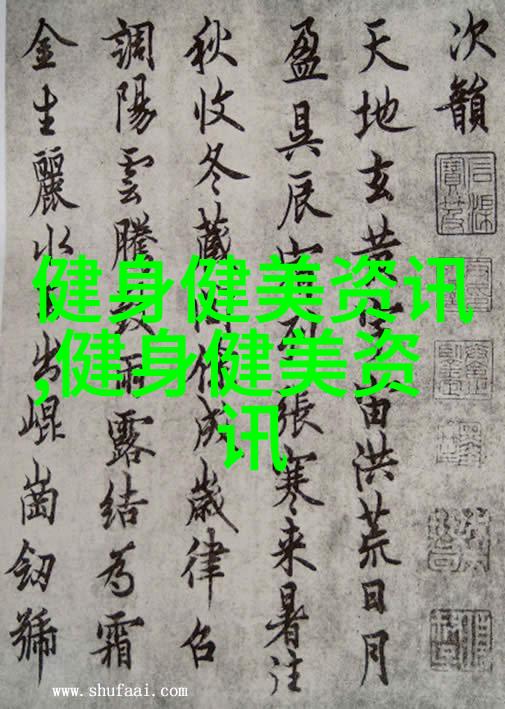 次韻
天地玄黄宇宙洪荒日月
盈昃辰宿列張寒来暑往
秋收冬藏閏餘成歲律召
調陽雲騰致雨露結為霜
金生麗水玉出崐崗劒號
健身健美资讯
,健身健美资
讯
www.shufaai.com